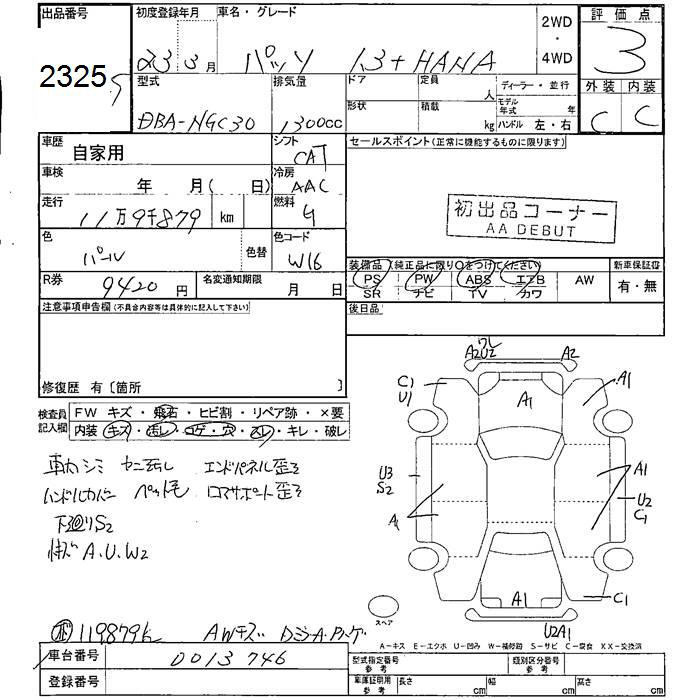 出品番号 初度登録年月 車名・グレード 2WD・4WD 評価点
2325 23 3月 パッソ 1.3+HANA 3
型式 排気量 ドア 定員 人 ディーラー・並行 外装 内装
DBA-NGC30 1300cc 形状 積載 kg モデル年式 年 ハンドル 左・右 C C
車歴 自家用 シフト CAT セールスポイント(正常に機能するものに限ります)
車検 年 月( 日) 冷房 AAC
走行 11万9千879 km 燃料 G
初出品コーナー
AA DEBUT
色 パール 色替 色コード W16
装備品(純正品に限り○をつけてください) 新車保証書
R券 9420円 名変通知期限 月 日
PS PW ABS エアB AW 有・無
SR ナビ TV カワ
注意事項申告欄(不具合内容等は具体的に記入して下さい) 後日品
修復歴 有〔箇所 〕
検査員記入欄 FW キズ・飛石・ヒビ割・リペア跡・×要
内装・キズ・汚レ・コゲ・穴・スレ・キレ・破レ
ワレ
A2U2 A2
C1 U1 A1 A1
車内シミ ヤニ汚レ エンドパネル歪ミ
ハンドルカバー ペット毛 コアサポート歪ミ
U3 S2 A1 U2 C1
下廻りS2
A1
キズ A.U.W2
A1 C1
スペア
U2A1
119879k AWキズ
A-キス E-エクボ U-凹み W-補修跡 S-サビ C-腐食 XX-交換済
車台番号 0013746 型式指定番号 参考 類別区分番号 参考
登録番号 車庫証明用 参考 長さ cm 幅 cm 高さ cm